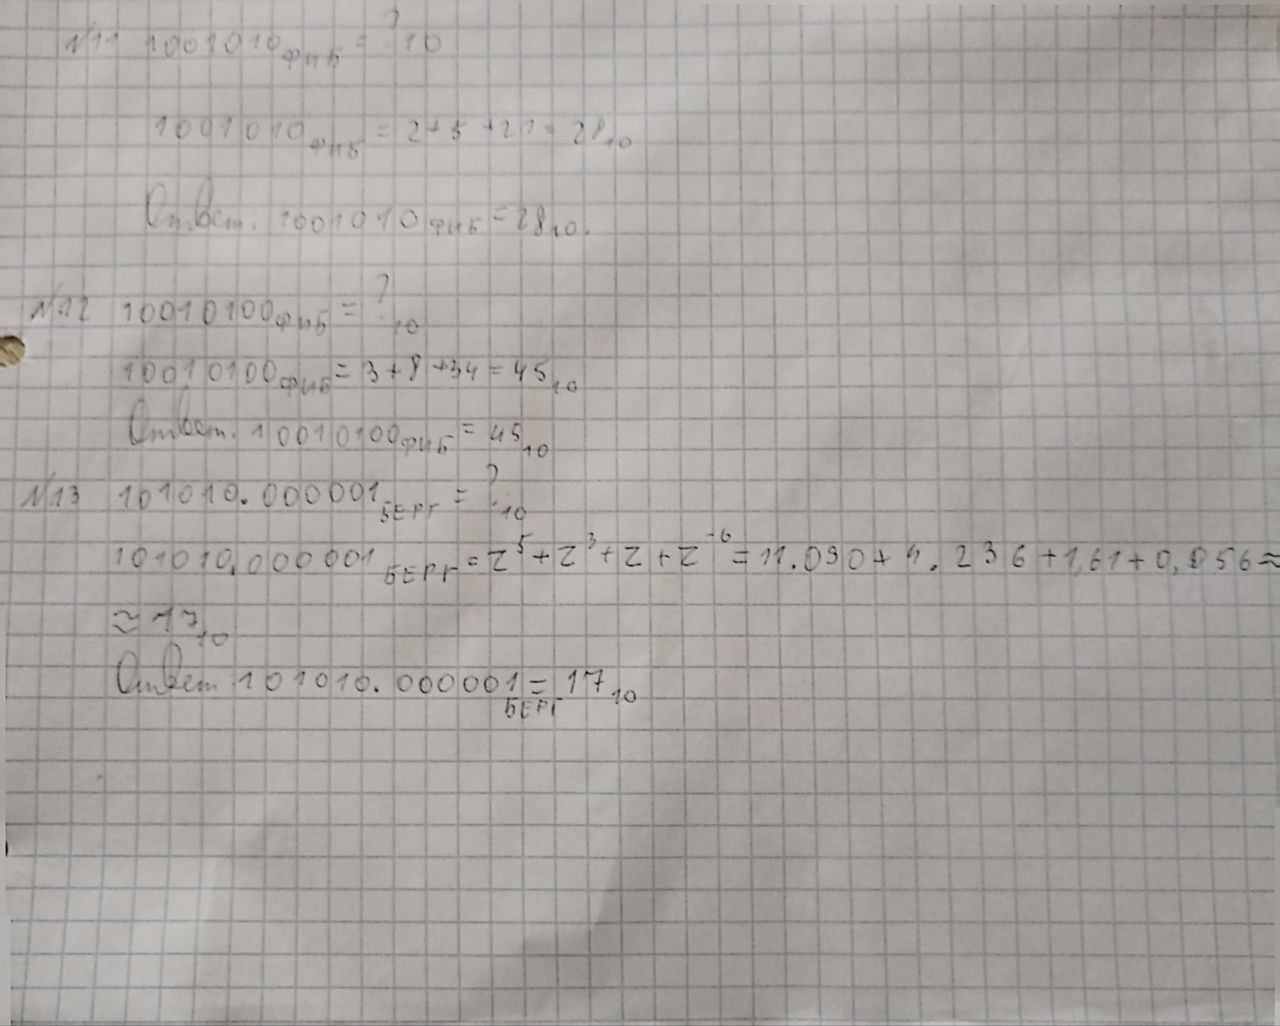 №11 1001010фиб = ?10
1001010фиб = 2+5+21=2810
Ответ: 1001010фиб=2810.
№12 10010100фиб = ?10
10010100фиб = 3+8+34=4510
Ответ. 10010100фиб = 4510
№13 101010.000001БЕРГ = ?10
101010,000001БЕРГ = z^5+z^3+z+z^-6=11.090+4.236+1,61+0,056≈
≈1710
Ответ 101010.000001БЕРГ=1710